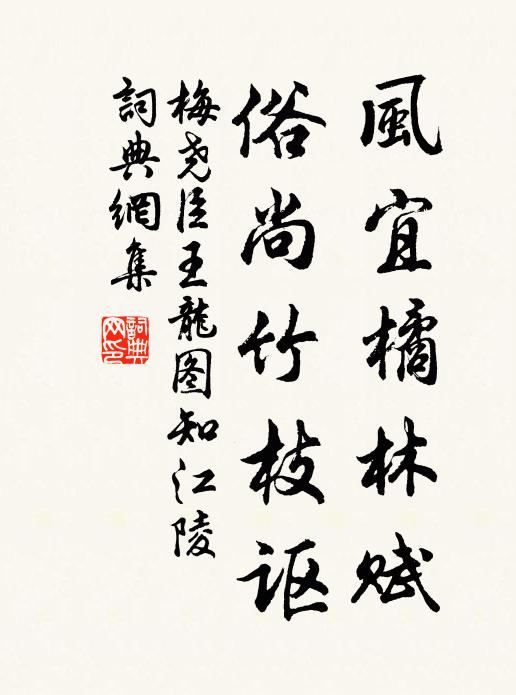 風宜橘林賦
俗尚竹枝讴
梅尧臣王龍图知江陵
詞典網集
詞典网印